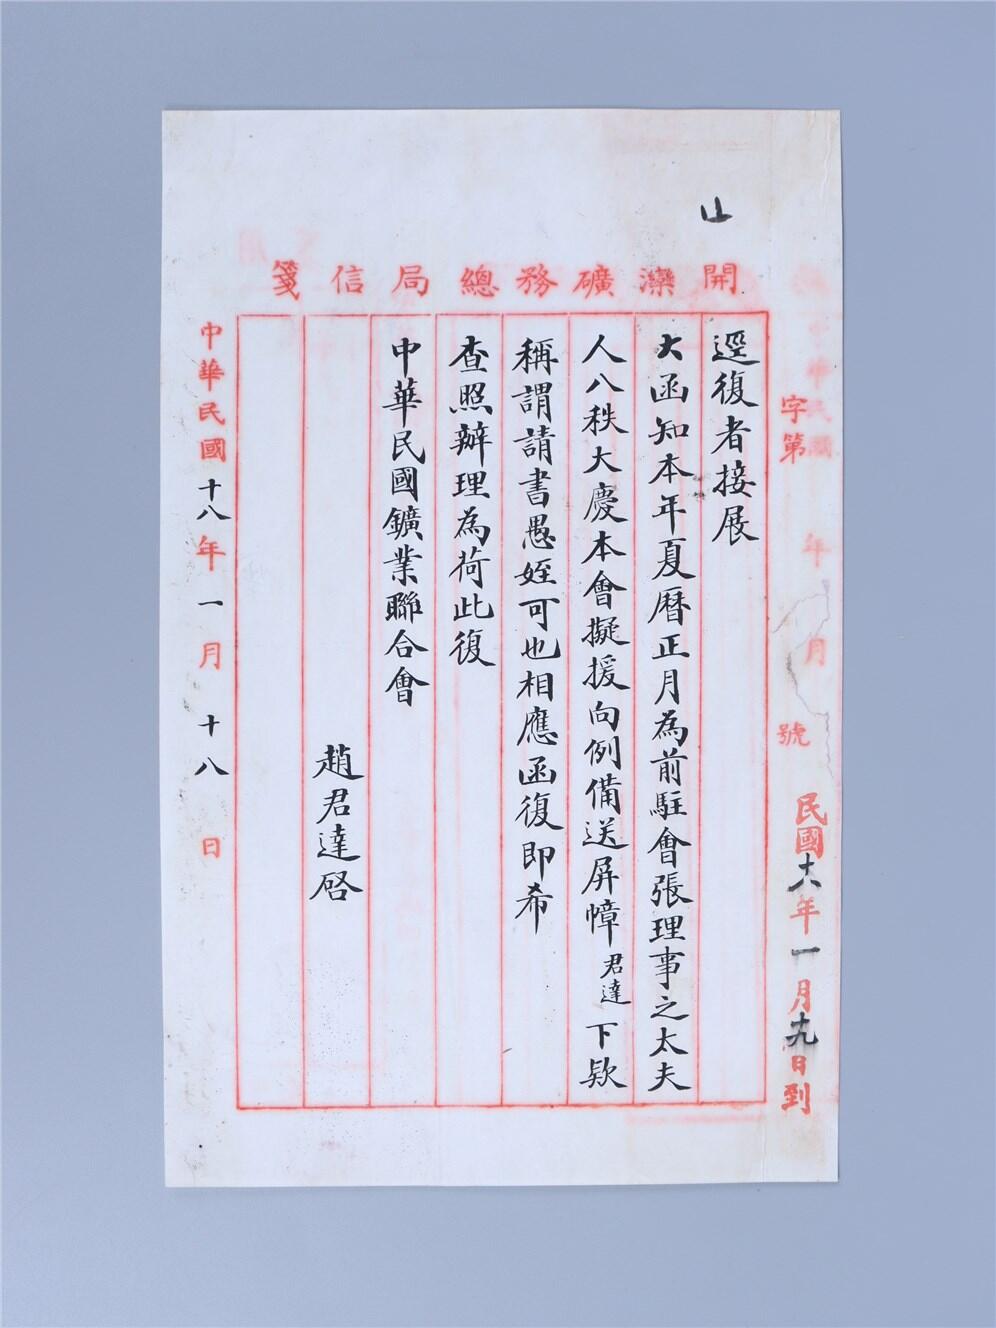 開灤礦務總局信箋
字第 年 月 號
民國十八年一月十九日到
逕復者接展
大函知本年夏曆正月為前駐會張理事之太夫
人八秩大慶本會擬援向例備送屏幛君達下欵
稱謂請書愚姪可也相應函復即希
查照辦理為荷此復
中華民國鑛業聯合會
趙君達啓
中華民國十八年一月十八日